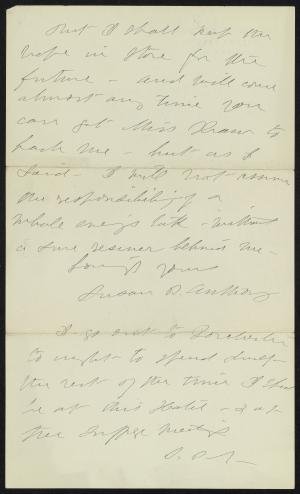 But I shall keep the
hope in store for the
future - and will come
almost any time you
can get Miss to
back me - but as I
said - I will not assume
the responsibility of a
whole evening's talk - without
a sure reserve behind me -
Lovingly yours
Susan B. Anthony
I go out to Dorchester
to night - to spend
the rest of the time I shan
be at this Hotel - & at
the Suffrage Meetings
S. B. A -